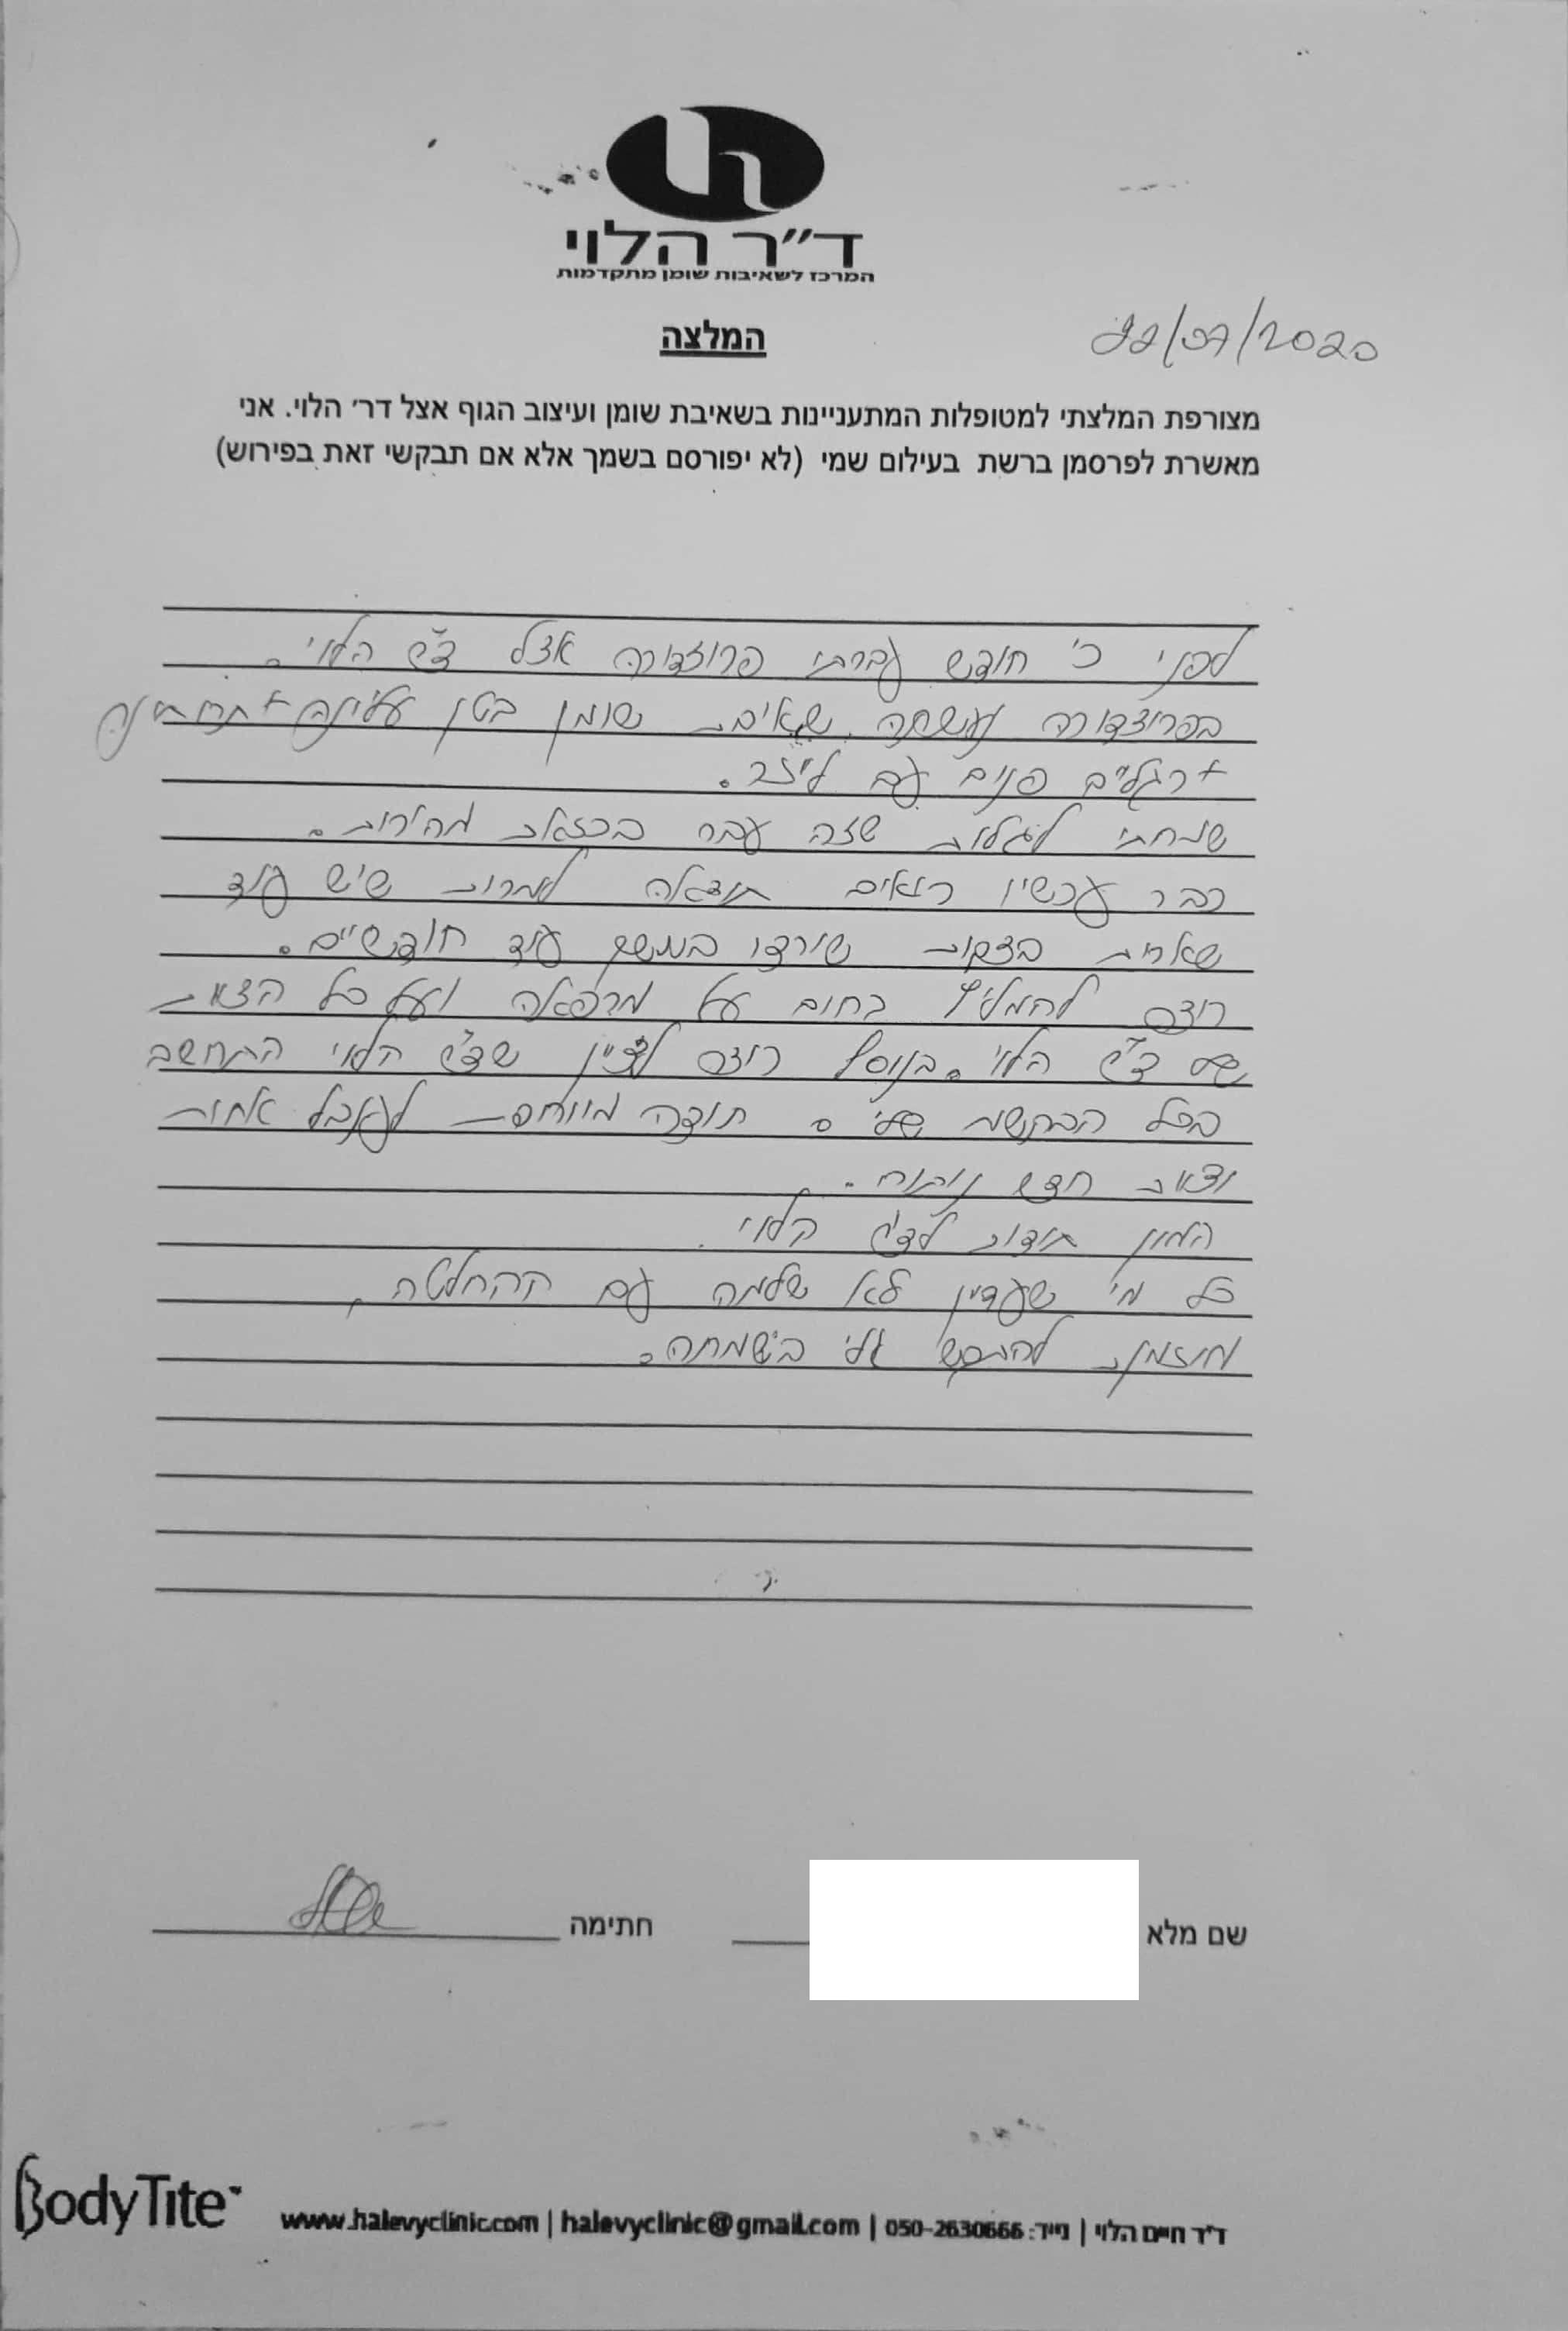 ד״ר הלוי
המרכז לשאיבות שומן מתקדמות
המלצה
22/07/2020
מצורפת המלצתי למטופלות המתעניינות בשאיבת שומן ועיצוב הגוף אצל דר׳ הלוי. אני
מאשרת לפרסמן ברשת בעילום שמי (לא יפורסם בשמך אלא אם תבקשי זאת בפירוש)
לפני כ׳ חודש עברתי פרוצדורה אצל ד״ר הלוי.
בפרוצדורה נעשתה שאיבת שומן בטן עליונה + תחתונה
+ רגליים פנים עם לייזר.
שמחתי לגלות שזה עבר בכזאת מהירות.
כבר עכשיו רואים תוצאה למרות שיש עוד
שארית בצקות שירדו במשך עוד חודשיים.
רוצה להמליץ בחום על מרפאה ועל כל הצוות
של ד״ר הלוי. בנוסף רוצה לציין שד״ר הלוי התחשב
בכל הבקשות שלי. תודה מיוחדת לענבל אחות
וצוות חדר ניתוח.
המון תודות לד״ר הלוי.
כל מי שעדיין לא שלמה עם ההחלטה,
מוזמנת להתקשר אלי בשמחה.
שם מלא
חתימה
BodyTite
ד״ר חיים הלוי | נייד: 050-2630666 | halevyclinic@gmail.com | www.halevyclinic.com